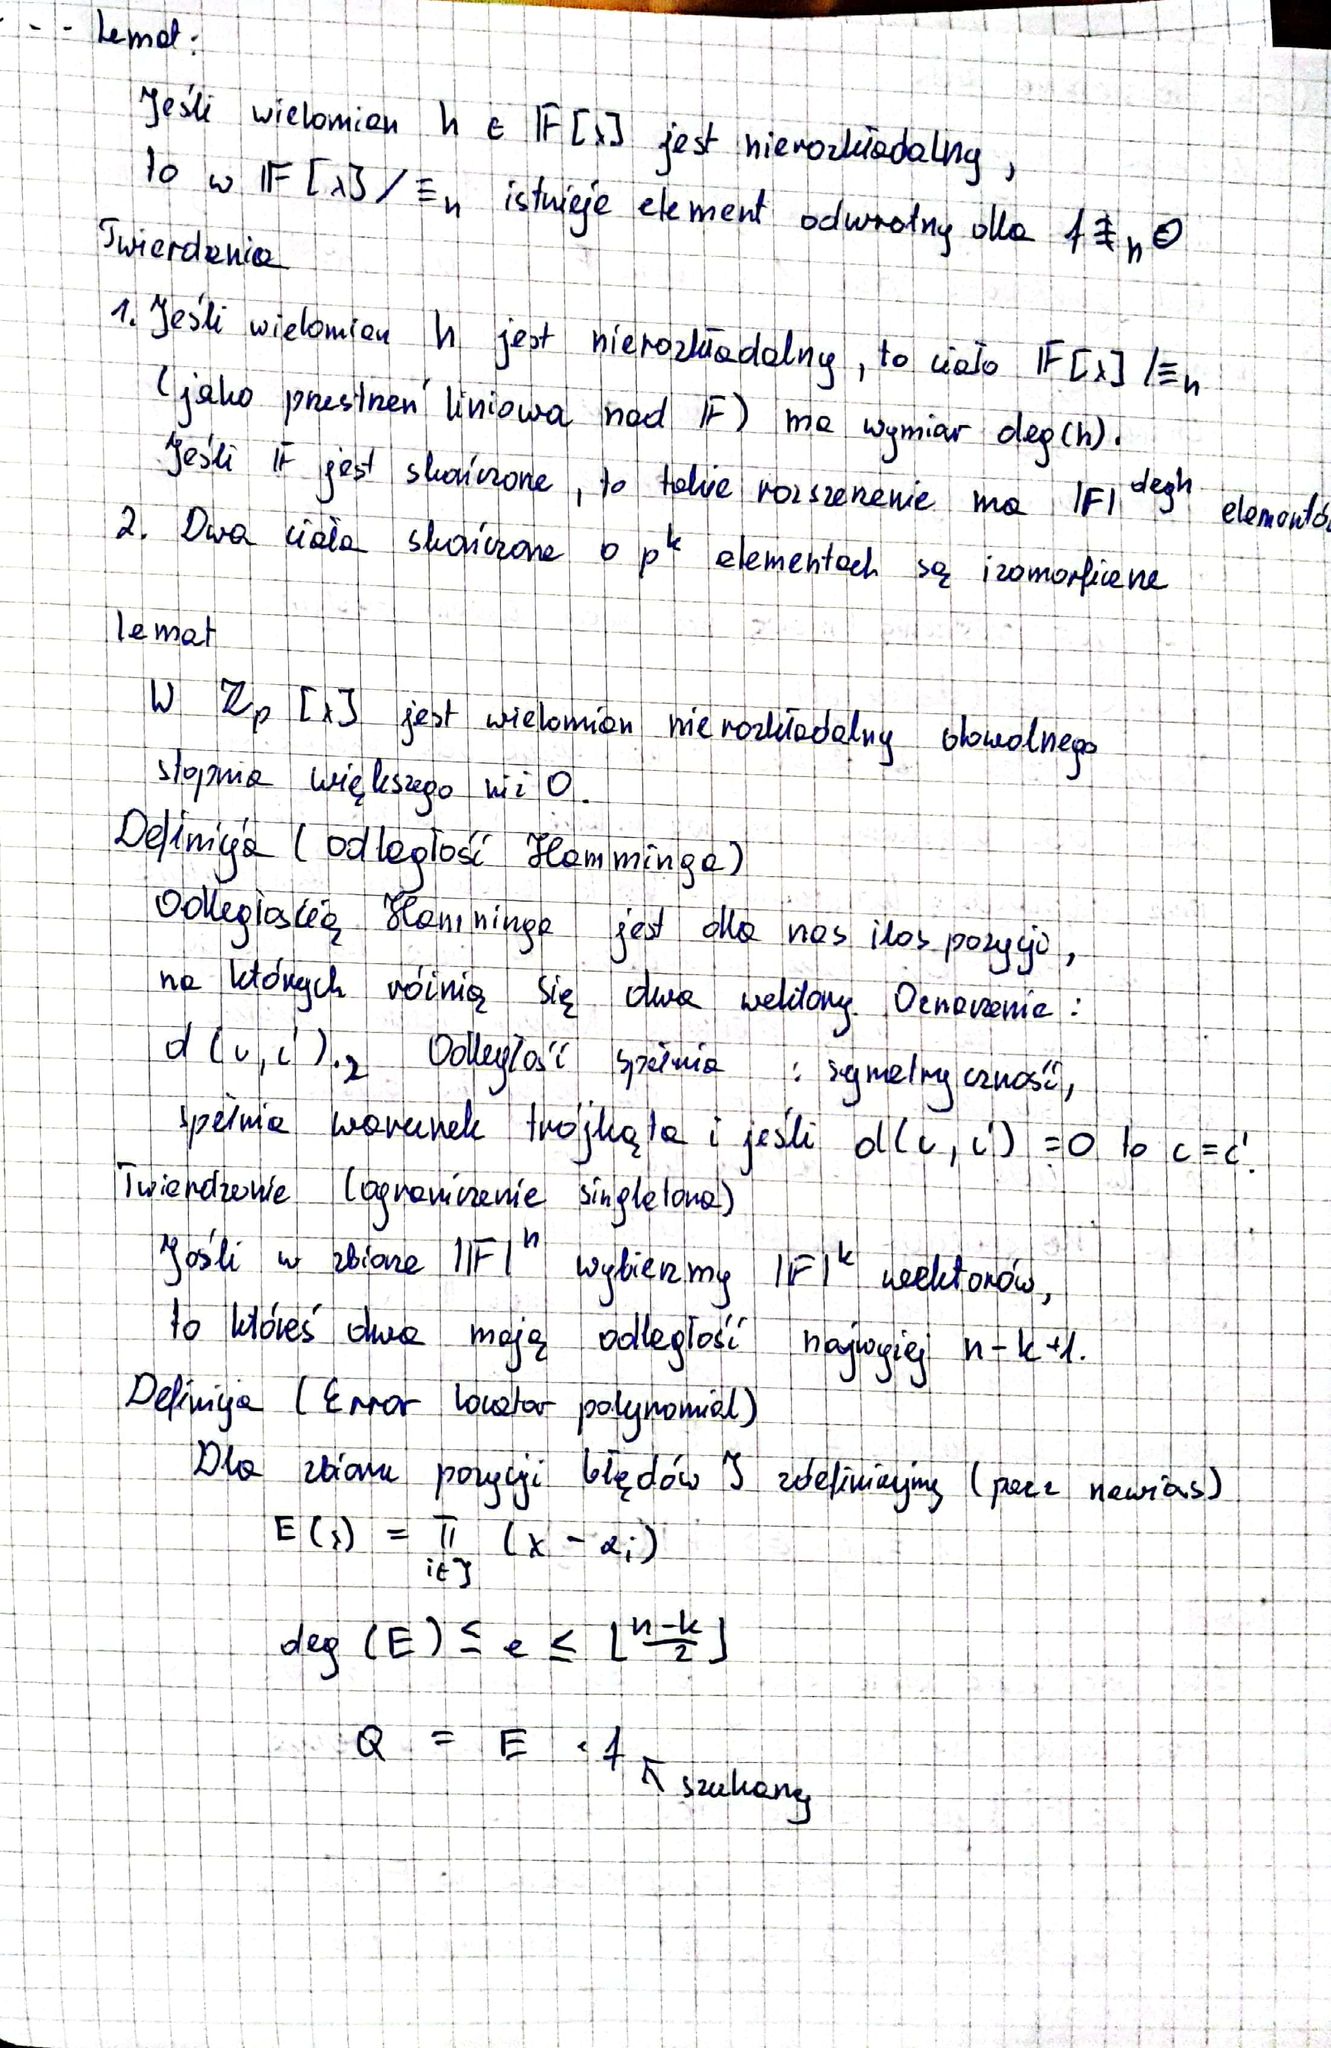 Lemat:
Jeśli wielomian h ∈ F[x] jest nierozkładalny,
to w F[x]/≡h istnieje element odwrotny dla f ≢h 0
Twierdzenia
1. Jeśli wielomian h jest nierozkładalny, to ciało F[x]/≡h
(jako przestrzeń liniowa nad F) ma wymiar deg(h).
Jeśli F jest skończone, to takie rozszerzenie ma |F|^deg h elementów
2. Dwa ciała skończone o p^k elementach są izomorficzne
Lemat
W Zp[x] jest wielomian nierozkładalny dowolnego
stopnia większego niż 0.
Definicja (odległość Hamminga)
Odległością Hamminga jest dla nas ilos pozycji,
na których różnią się dwa wektory. Oznaczenie:
d(c, c'). Odległość spełnia : symetryczność,
spełnia warunek trójkąta i jeśli d(c, c') = 0 to c = c'.
Twierdzenie (ograniczenie singletona)
Jeśli w zbiorze |F|^n wybierzmy |F|^k wektorów,
to któreś dwa mają odległość najwyżej n-k+1.
Definicja (Error locator polynomial)
Dla zbioru pozycji błędów J zdefiniujmy (nawias)
E(x) = ∏ (x - αi)
i∈J
deg(E) ≤ e ≤ ⌊(n-k)/2⌋
Q = E · f
↖ szukany